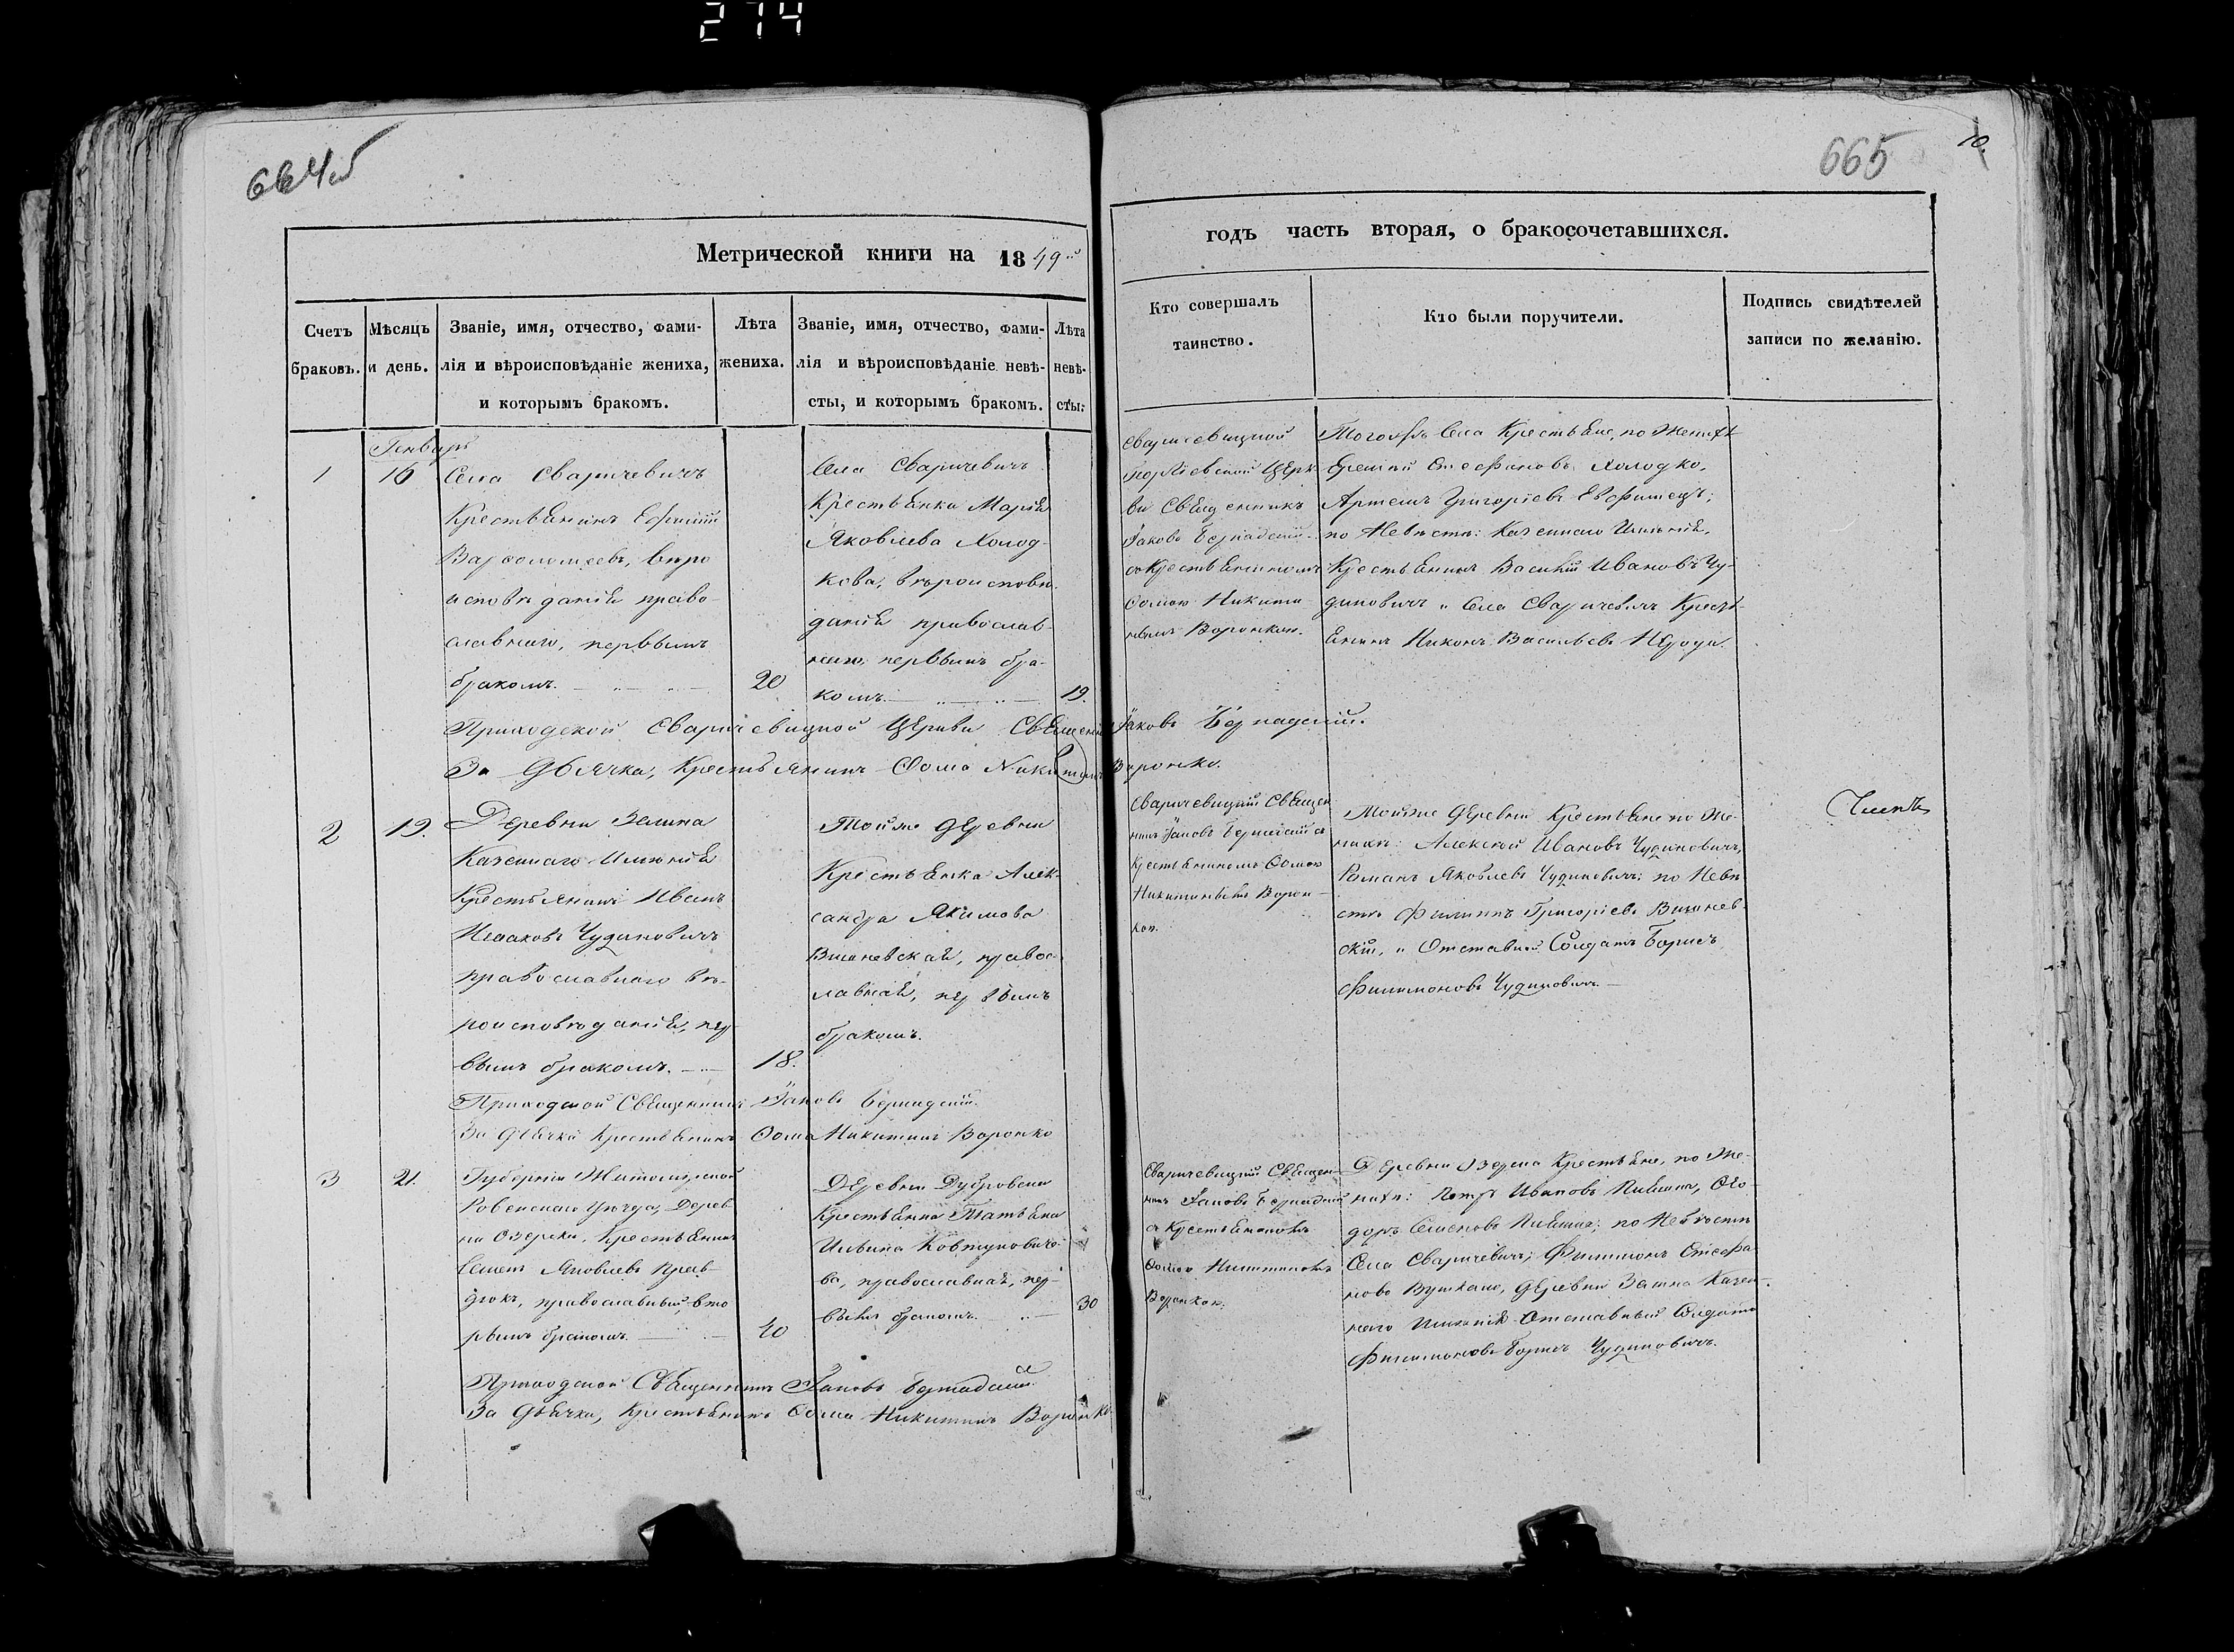 274
664об
665
10.
Метрической книги на 1849й
годъ часть вторая, о бракосочетавшихся.
Счетъ
браковъ.
Мѣсяцъ
и день.
Званіе, имя, отчество, фами-
лія и вѣроисповѣданіе жениха,
и которымъ бракомъ.
Лѣта
жениха.
Званіе, имя, отчество, фами-
лія и вѣроисповѣданіе невѣ-
сты, и которымъ бракомъ.
Лѣта
невѣ-
сты.
Кто совершалъ
таинство.
Кто были поручители.
Подпись свидѣтелей
записи по желанію.
Генварь
1
16
Села Сваричевичъ
Крестьянинъ Ефимій
Варфоломеевъ, вѣро
исповѣданія право-
славнаго, первымъ
бракомъ.
20
Села Сваричевичъ
Крестьянка Марія
Яковлева Холод-
кова, вѣроисповѣ-
данія православ-
наго, первымъ бра-
комъ
19.
Сваричевицкой
Церк-
ви Священникъ
Іаковъ Бернадскій
съ Крестьяниномъ
Фомою Никити-
нымъ Воронкою.
Тогожъ Села Крестьяне, по Женихѣ
Стефановъ Холодко,
Артемъ Григоріевъ
по Невѣстѣ: Казеннаго Имѣнія,
Крестьянинъ Василій Ивановъ Чу-
диновичъ и Села Сваричевичъ Кресть-
янинъ Никонъ Васильевъ
Приходской Сваричевицкой Церкви Священникъ Іаковъ Бернадскій.
За Дьячка, Крестьянинъ Фома Никитинъ Воронко.
2
19.
Деревни
Казеннаго Имѣнія
Крестьянинъ Иванъ
Исааковъ Чудиновичъ
православнаго вѣ-
роисповѣданія, пер-
вымъ бракомъ.
18.
Тойже Деревни
Крестьянка Алек-
сандра Якимова
Вишневская, правос-
лавная, первымъ
бракомъ.
Сваричевицкій Священ
никъ Іаковъ Бернадскій съ
Крестьяниномъ Фомою
Никитинымъ Ворон-
кою.
Тойже Деревни Крестьяне по Же-
нихѣ: Алексѣй Ивановъ Чудиновичъ,
Романъ Яковлевъ Чудиновичъ; по Невѣ
стѣ Филиппъ Григоріевъ Вишнев-
скій, и Отставный Солдатъ Борисъ
Филимоновъ Чудиновичъ.
Приходской Священникъ Іаковъ Бернадскій.
За Дьячка Крестьянинъ Фома Никитинъ Воронко
3
21.
Губерніи Житомирской
Ровенскаго Уѣзда, Дерев
ни Озерска, Крестьянинъ
Яковлевъ
православный, вто
рымъ бракомъ.
40
Деревни Дубровска
Крестьянка Татьяна
Ильина Ковтунович-
ва, православная, пер-
вымъ бракомъ.
30
Сваричевицкій Священ-
никъ Іаковъ Бернадскій
съ Крестьяниномъ
Фомою Никитинымъ
Воронкою.
Деревни Озерска Крестьяне, по Же-
нихѣ: Петръ Ивановъ Ѳео-
доръ Семеновъ по Невѣстѣ
Села Сваричевичъ, Филимонъ Стефа-
новъ деревни Казен-
наго Имѣнія Отставный Солдатъ
Филимоновъ Борисъ Чудиновичъ.
Приходской Священникъ Іаковъ Бернадскій
За Дьячка, Крестьянинъ Фома Никитинъ Воронко.